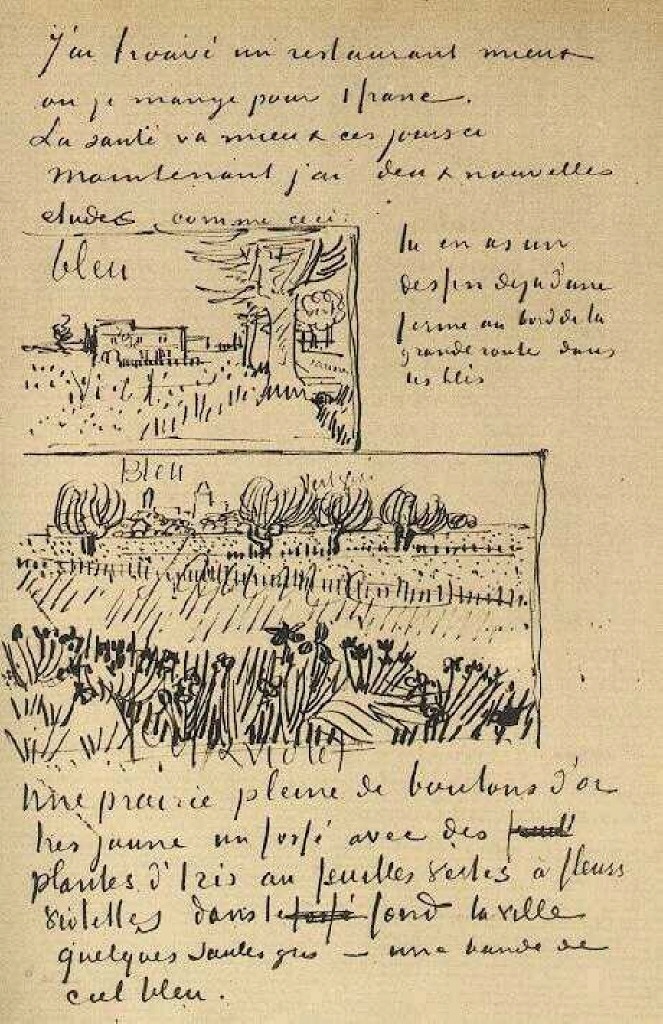 J'ai trouvé un restaurant mieux
ou je mange pour 1 franc.
La santé va mieux ces jours ci
Maintenant j'ai deux nouvelles
etudes comme ceci:
bleu
vert
tu en as un
dessin deja d'une
ferme au bord de la
grande route dans
les blés
Bleu
vert gris
violet
Une prairie pleine de boutons d'or
tres jaune un fossé avec des
plantes d'Iris au feuilles vertes à fleurs
violettes dans le fossé fond la ville
quelques saules gris – une bande de
ciel bleu.